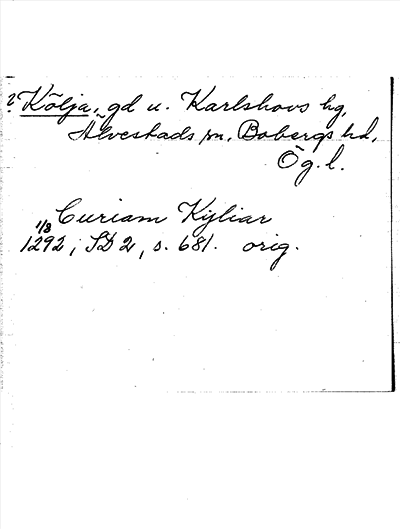 ? Kölja, gd u. Karlshovs hg,
Älvestads sn, Bobergs hd,
Ög. l.
Curiam Kyliar
1/8
1292, SD 2, s. 681. orig.